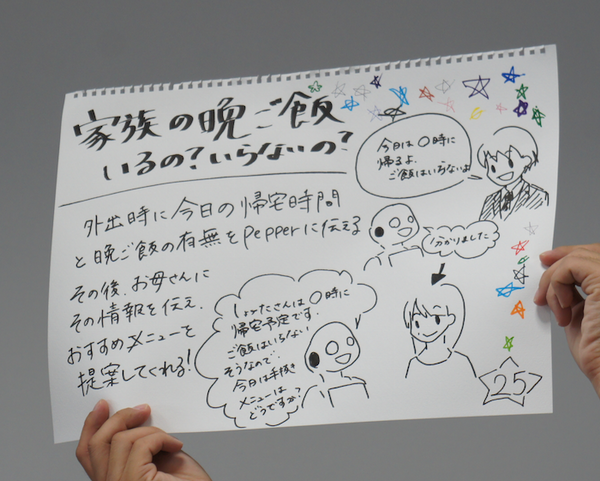 家族の晩ご飯
いるの?いらないの?
今日は〇時に
帰るよ.
ご飯はいらないよ
外出時に今日の帰宅時間
と晩ご飯の有無をPepperに伝える
わかりました
その後.お母さんに
その情報を伝え.
おすすめメニューを
提案してくれる!
しょうたさんは〇時に
帰宅予定です.
ご飯はいらない
そうなので.
今日は手抜き
メニューは
どうですか?
25